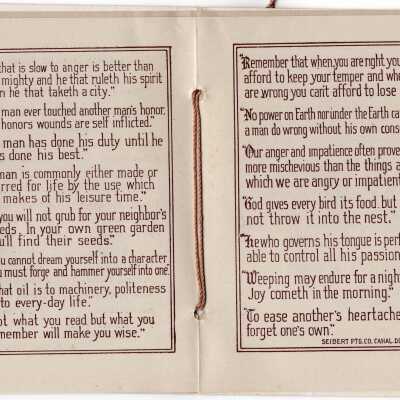 that is slow to anger is better than
mighty and he that ruleth his spirit
n he that taketh a city."
man ever touched another man's honor,
honors wounds are self inflicted."
man has done his duty until he
s done his best."
man is commonly either made or
rred for life by the use which
makes of his leisure time."
you will not grub for neighbor's
eds. In your own green garden
u'll find their seeds."
ou cannot dream yourself into a character
u must forge and hammer yourself into one
hat oil is to machinery, politeness
to every-day life."
ot what you read but what you
member will make you wise."
"Remember that when you are right, you
afford to keep your temper and whe
are wrong you can't afford to lose
"No power on Earth nor under the Earth ca
a man do wrong without his own cons
"Our anger and impatience often prove
more mischevious than the things a
which we are angry or impatient
"God gives every bird its food, but
not throw it into the nest."
"He who governs his tongue is perf
able to control all his passion
"Weeping may endure for a night
Joy cometh in the morning."
"To ease another's heartache
forget one's own."
SEIBERT PTG. CO. CANAL DO